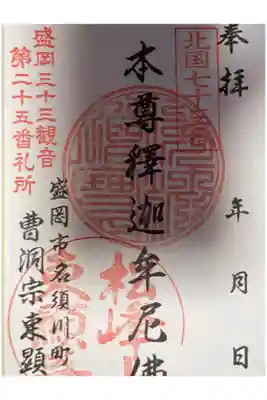 奉拝
年月日
本尊釋迦牟尼佛
盛岡三十三観音
第二十五番礼所
盛岡市名須川町
曹洞宗東顕